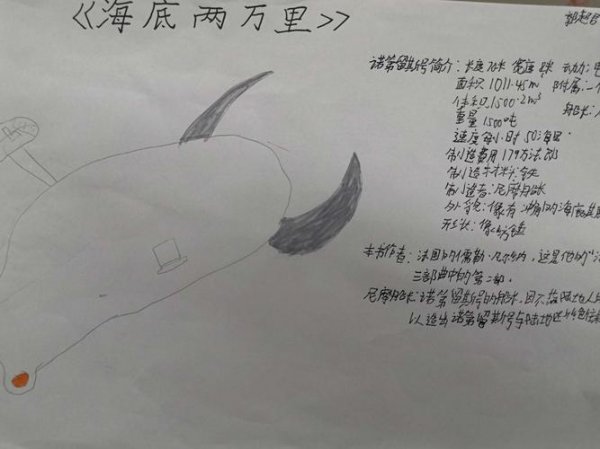 《海底两万里》
诺第留斯号简介：长度70米 宽度8米 动力：电
面积1011.45m 附属：一个
体积1500.2m³
重量1500吨
速度每小时50海里
制造费用179万法郎
制造材料：铁
制造者：尼摩船长
外貌：像有冲角的海底
形状：像纺锤
本书作者：法国的儒勒·凡尔纳，这是他的
三部曲中的第二部.
尼摩船长：诺第留斯号的船长，因不
以造出诺第留斯号与陆地